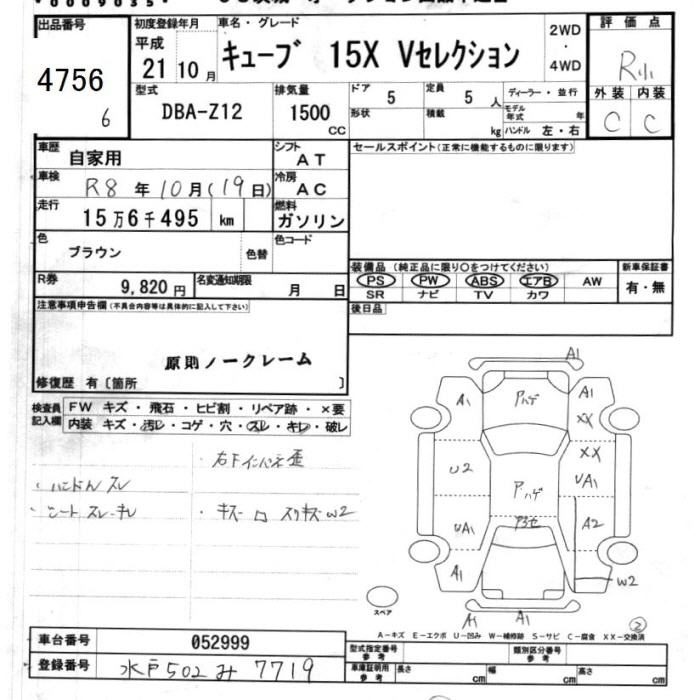 出品番号
4756
6
初度登録年月
平成
21 10 月
車名・グレード
キューブ 15X Vセレクション
2WD
・
4WD
評価点
R小
外装 内装
C C
型式
DBA-Z12
排気量
1500
CC
ドア
5
定員
5 人
形状
積載
kg
ディーラー・並行
モデル年式 年
ハンドル 左・右
車歴
自家用
シフト
AT
車検
R8 年 10 月(19日)
冷房
AC
走行
15万6千495 km
燃料
ガソリン
色
ブラウン
色替
色コード
R券
9,820 円
名変通知期限
月 日
セールスポイント(正常に機能するものに限ります)
装備品(純正品に限り○をつけてください)
PS PW ABS エアB AW
SR ナビ TV カワ
新車保証書
有・無
後日品
注意事項申告欄(不具合内容等は具体的に記入して下さい)
原則ノークレーム
修復歴 有〔箇所 〕
検査員記入欄
FW キズ・飛石・ヒビ割・リペア跡・×要
内装 キズ・汚レ・コゲ・穴・スレ・キレ・破レ
右Fインパネ歪
・ハンドルスレ
・シートスレ・キレ
・キズ ロ スリキズ W2
A1
A1
アハゲ
A1
XX
XX
U2
ア・ハゲ
UA1
UA1
A2
A1
A1
W2
A1
A1
スペア
2
A-キズ E-エクボ U-凹み W-補修跡 S-サビ C-腐食 XX-交換済
車台番号
052999
登録番号
水戸502み7719
型式指定番号
参考
類別区分番号
参考
車庫証明用
参考
長さ cm
幅 cm
高さ cm